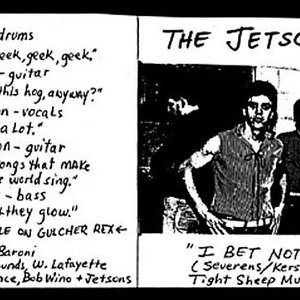 drums
eek, geek, geek."
- guitar
this hog, anyway?"
on - vocals
a Lot."
on - guitar
songs that MAKE
e world sing."
- bass
they glow."
LE ON GULCHER REX ←
Baroni
unds, W. Lafayette
nce, Bob Wino + Jetsons
THE JETSO
"I BET NOT
(Severens/Kers
Tight Sheep Mu